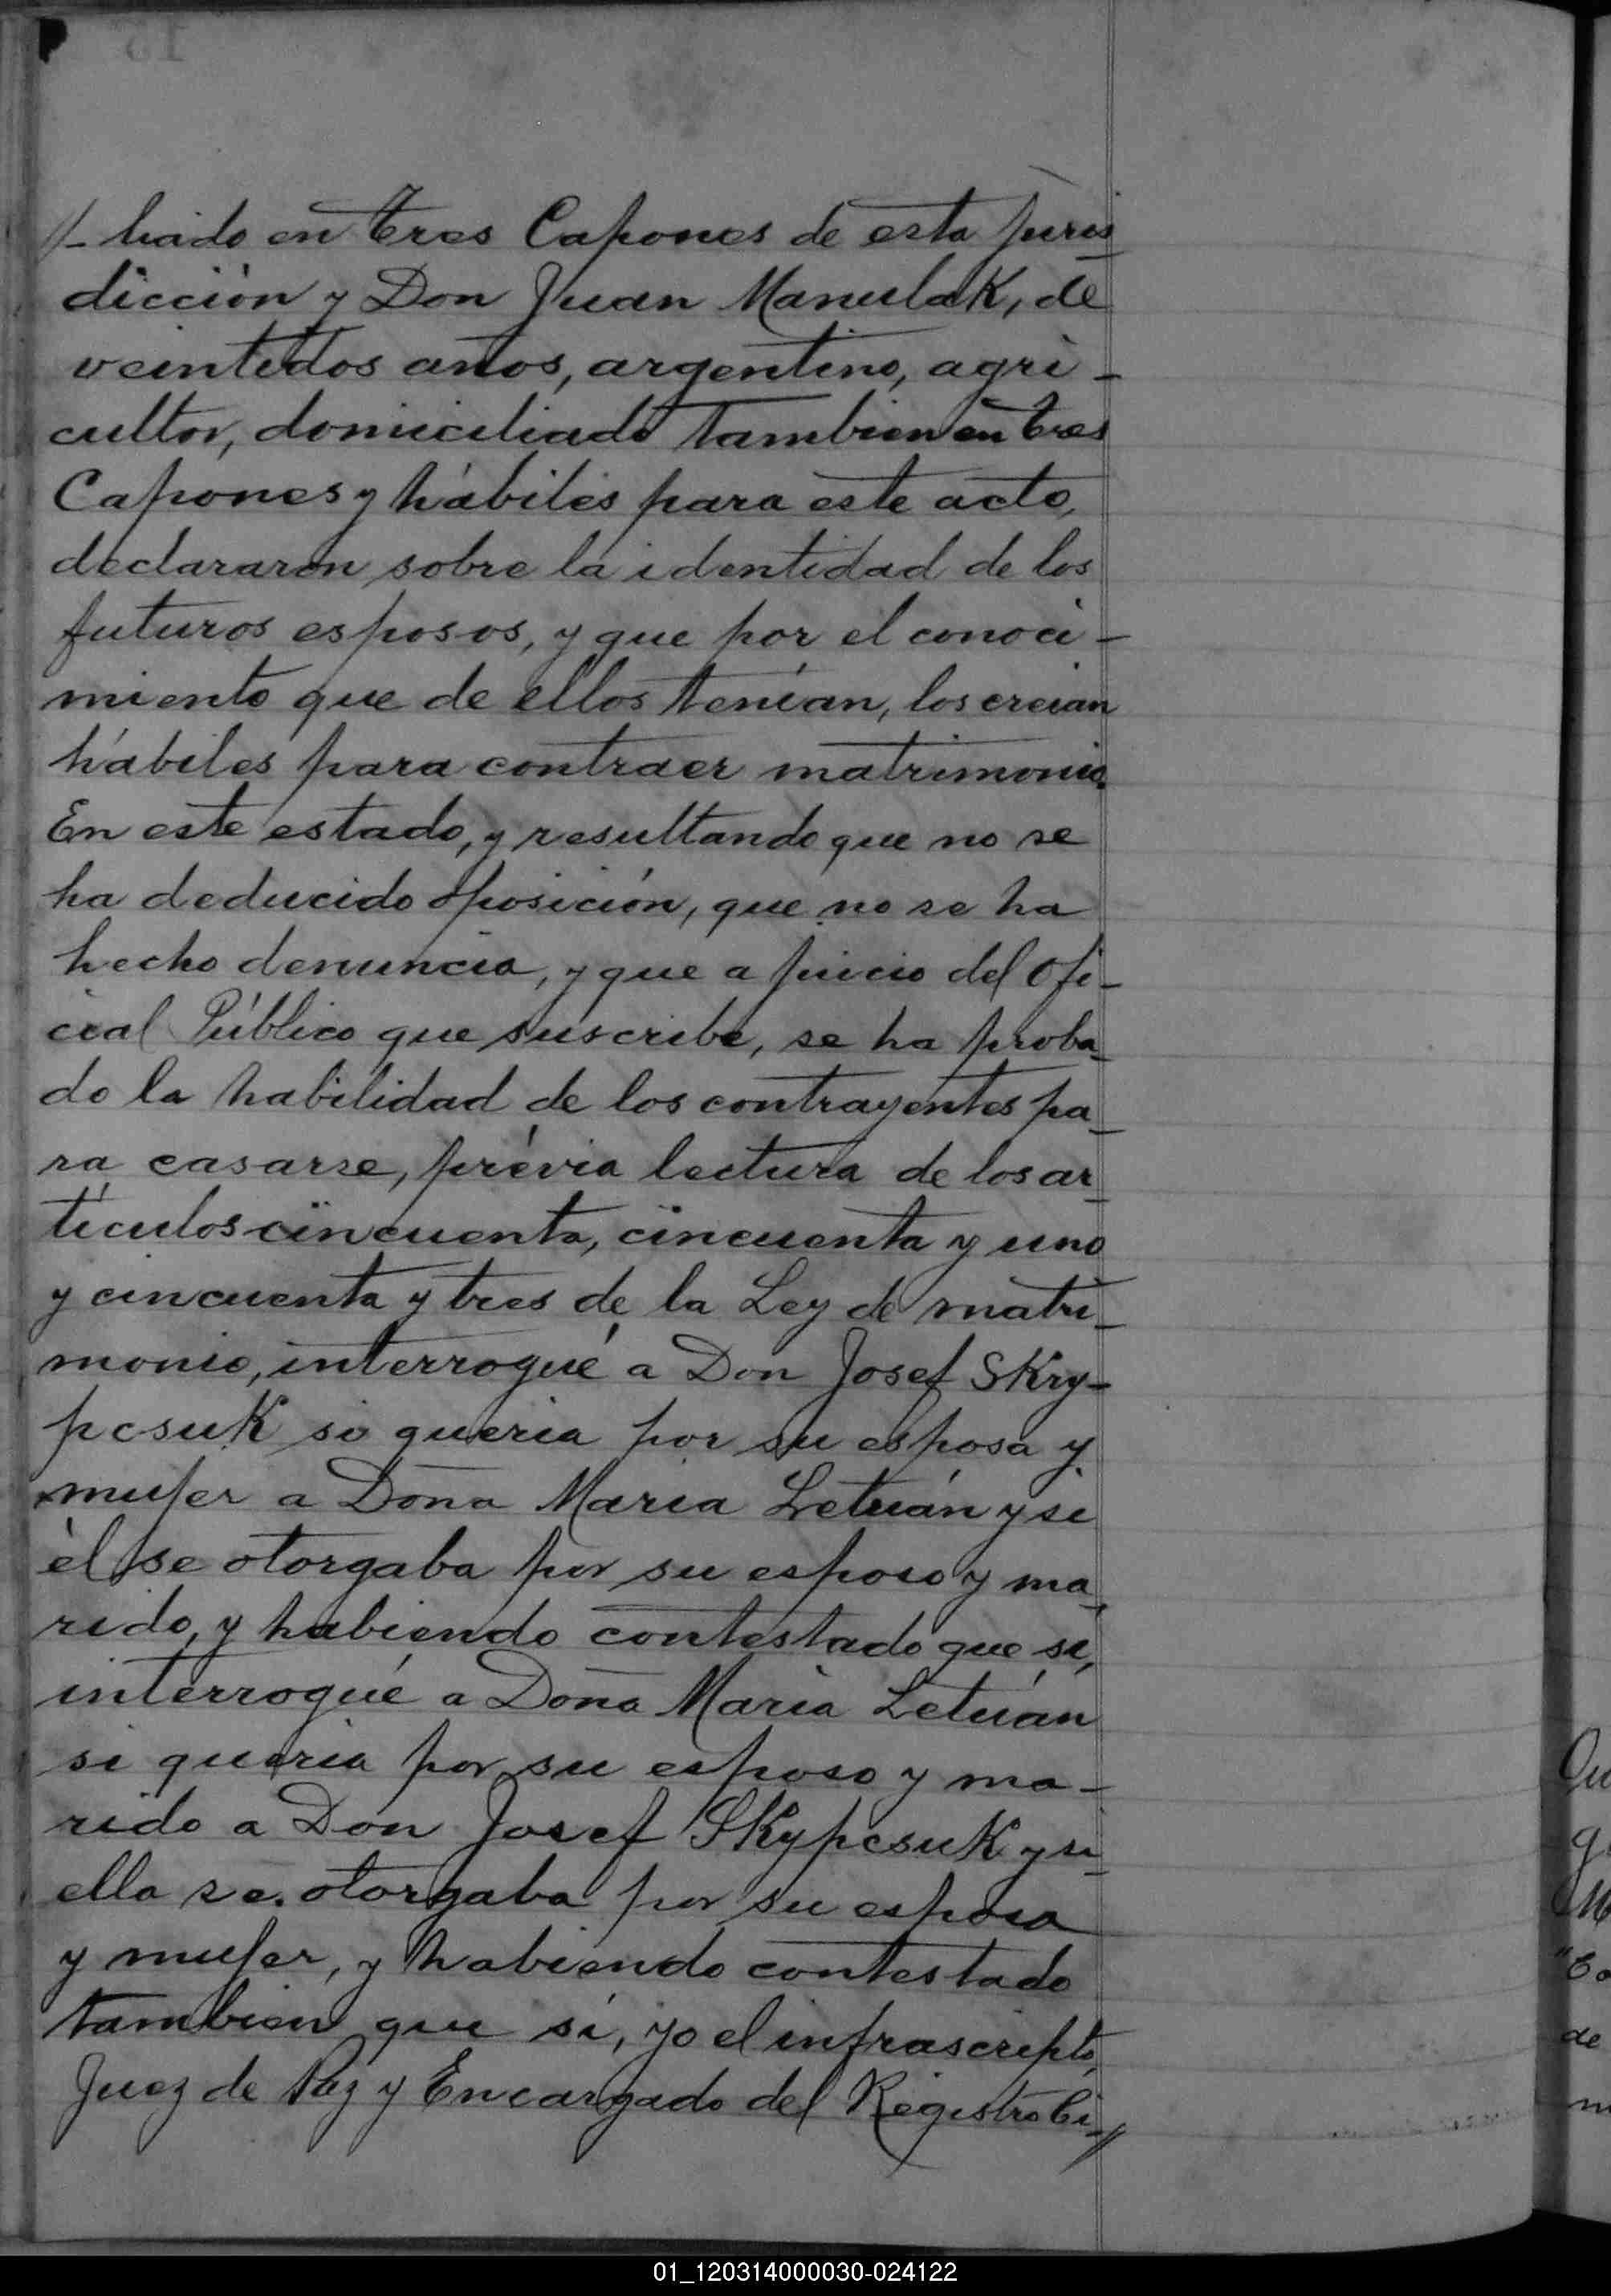 //-liado en Tres Capones de esta juris
dicción y Don Juan Manulak, de
veintedos años, argentino, agri-
cultor, domiciliado tambien en Tres
Capones y hábiles para este acto,
declararon sobre la identidad de los
futuros esposos, y que por el conoci-
miento que de ellos tenían, los creian
hábiles para contraer matrimonio.
En este estado, y resultando que no se
ha deducido oposición, que no se ha
hecho denuncia, y que a juicio del Ofi-
cial Público que suscribe, se ha proba-
do la habilidad de los contrayentes pa-
ra casarse, prévia lectura de los ar-
tículos cincuenta, cincuenta y uno
y cincuenta y tres de la Ley de matri-
monio, interrogué a Don Josef Skry-
pcsuk si queria por su esposa y
mujer a Doña Maria Letuán y si
él se otorgaba por su esposo y ma-
rido, y habiendo contestado que sí,
interrogué a Doña Maria Letuán
si queria por su esposo y ma-
rido a Don Josef Skypcsuk y si
ella se otorgaba por su esposa
y mujer, y habiendo contestado
tambien que sí, yo el infrascripto,
Juez de Paz y Encargado del Registro Ci-//
de
01_120314000030-024122